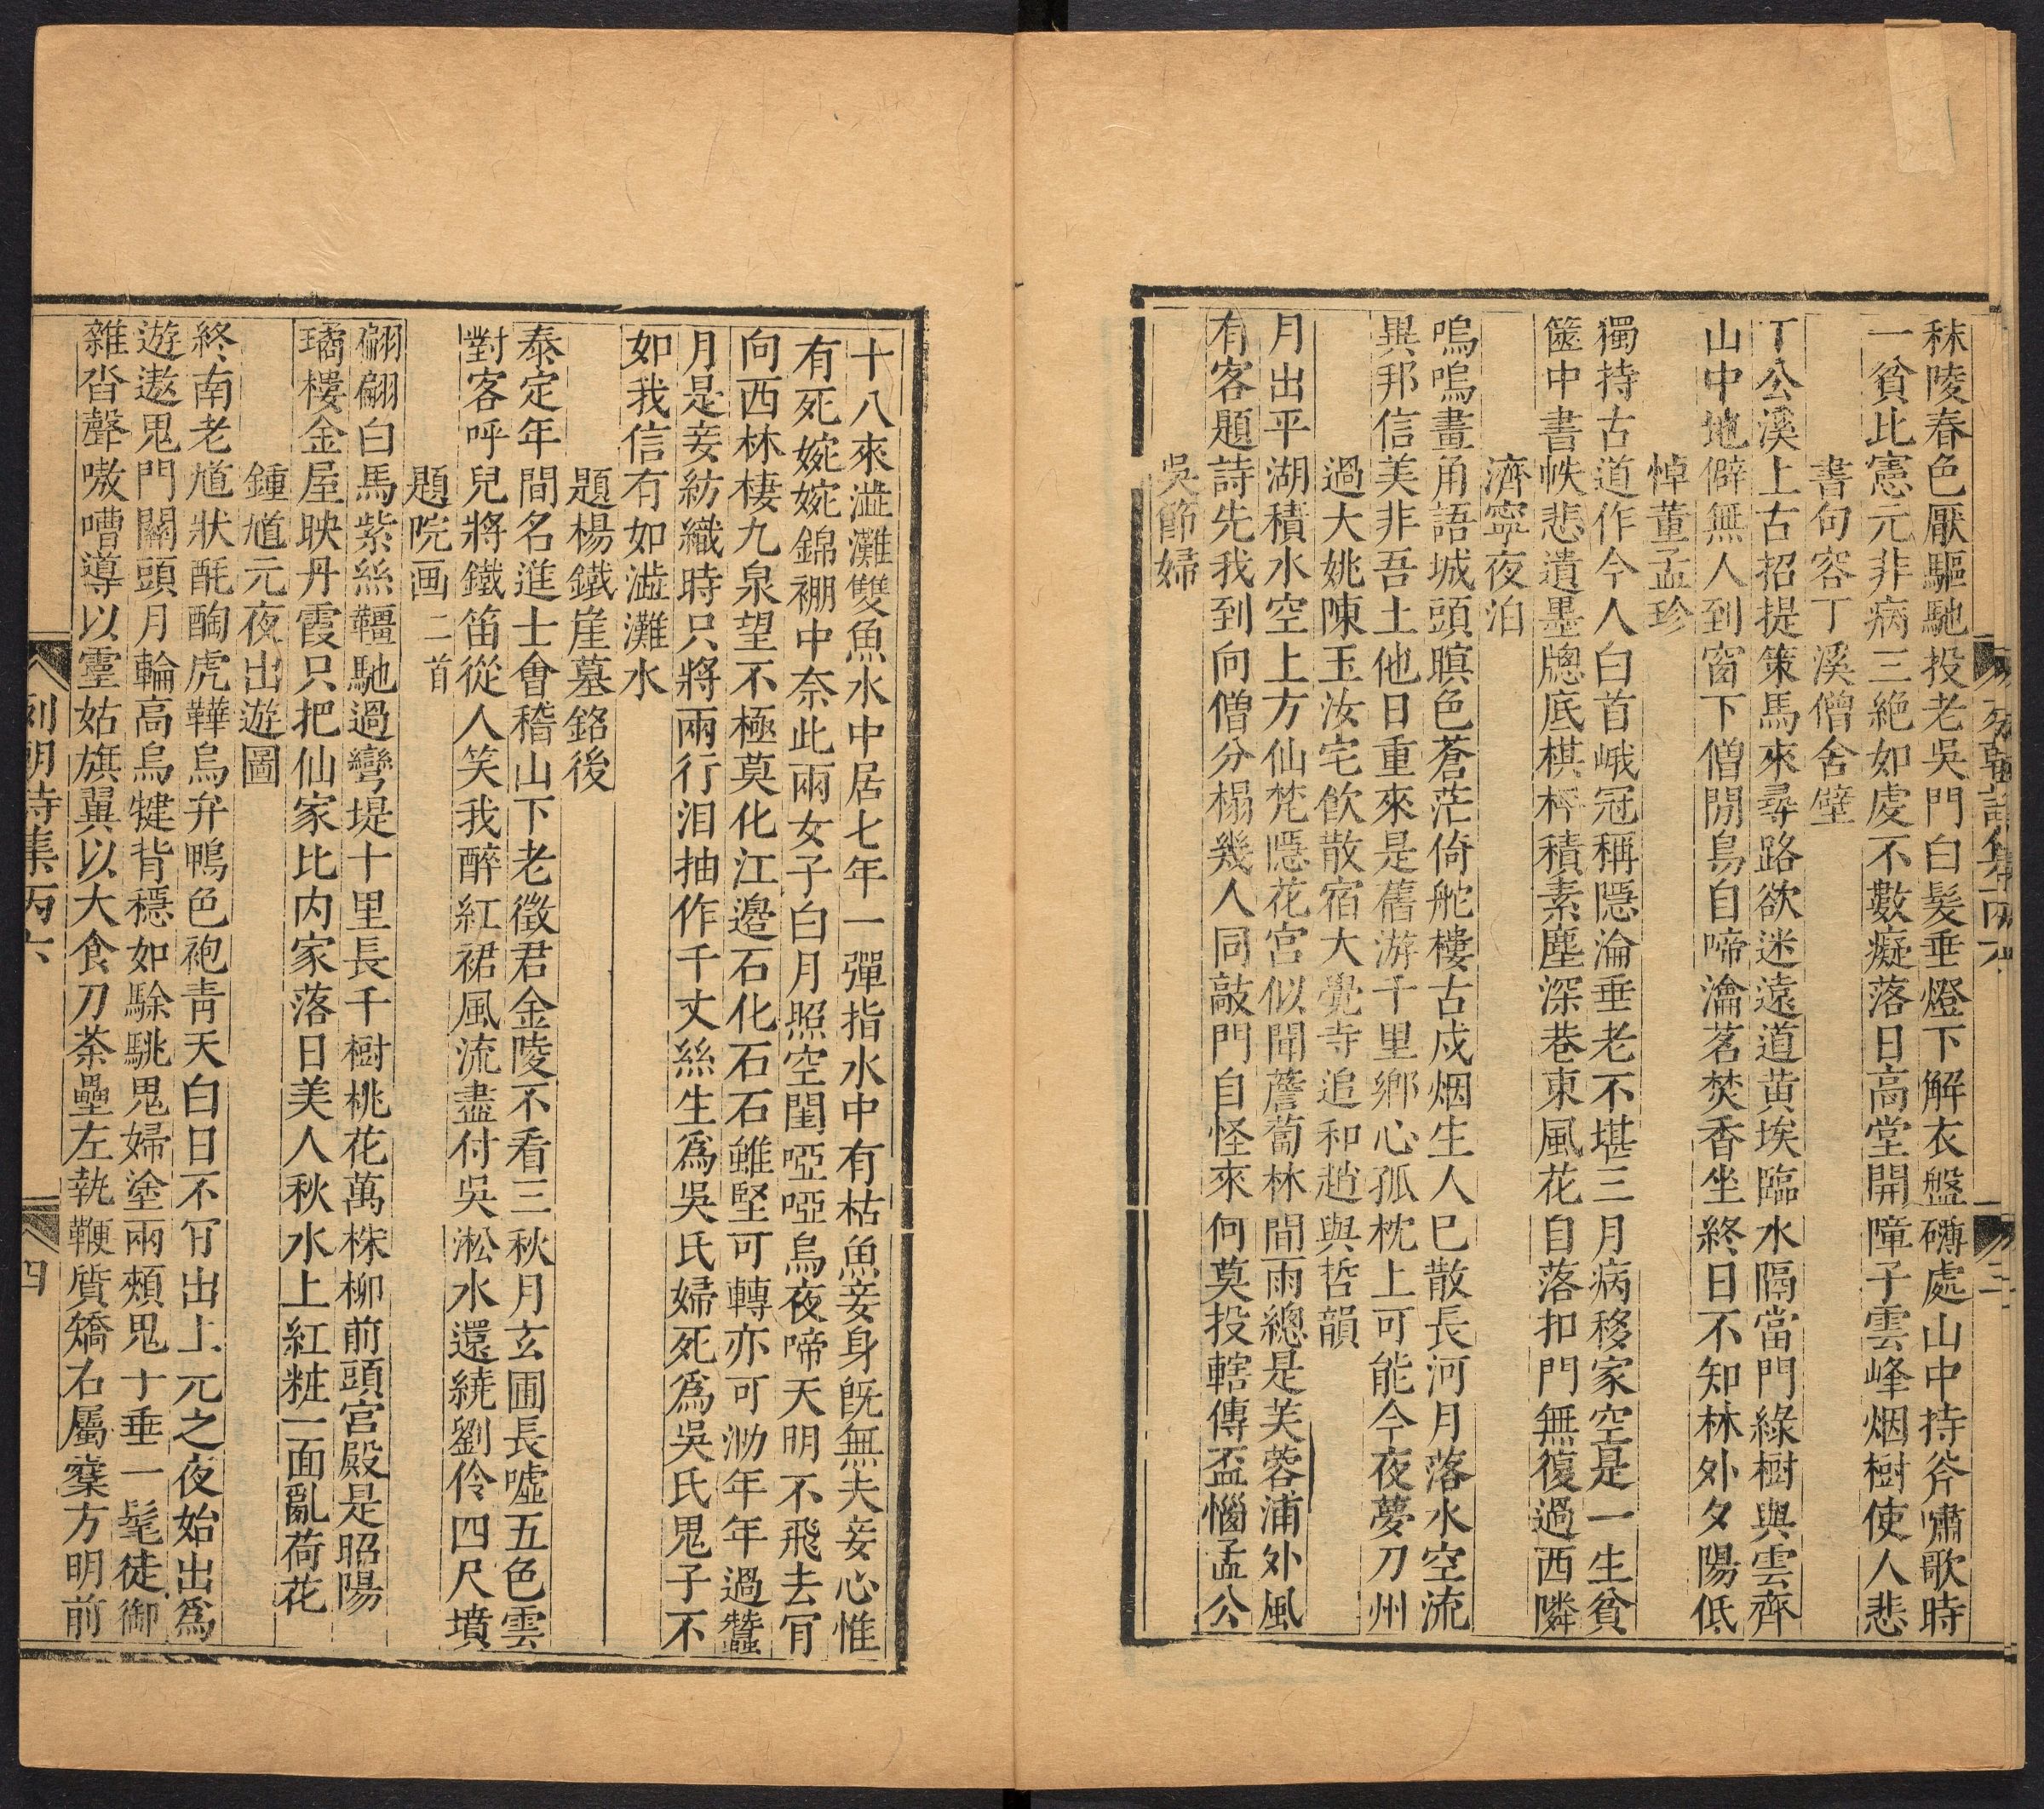 秣陵春色厭驅馳投老吳門白髮垂燈下解衣盤礴處山中持斧嘯歌時
一貧比憲元非病三絶如虔不數癡落日高堂開障子雲峰烟樹使人悲
書句容丁溪僧舍壁
丁公溪上古招提策馬來尋路欲迷遠道黃埃臨水隔當門綠樹與雲齊
山中地僻無人到窗下僧閒鳥自啼瀹茗焚香坐終日不知林外夕陽低
悼董孟珍
獨持古道作今人白首峨冠稱隱淪垂老不堪三月病移家空是一生貧
篋中書帙悲遺墨牕底棋枰積素塵深巷東風花自落扣門無復過西隣
濟寧夜泊
嗚嗚畫角語城頭暝色蒼茫倚舵樓古戍烟生人巳散長河月落水空流
異邦信美非吾土他日重來是舊游千里鄉心孤枕上可能今夜夢刀州
過大姚陳玉汝宅飲散宿大覺寺追和趙與哲韻
月出平湖積水空上方仙梵隱花宮似聞薝蔔林間雨總是芙蓉浦外風
有客題詩先我到向僧分榻幾人同敲門自怪來何莫投轄傳盃惱孟公
吳節婦
十八來澁灘雙魚水中居七年一彈指水中有枯魚妾身旣無夫妾心惟
有死婉婉錦棚中奈此兩女子白月照空閨啞啞烏夜啼天明不飛去肎
向西林棲九泉望不極莫化江邉石化石石雖堅可轉亦可泐年年過蠶
月是妾紡織時只將兩行泪抽作千丈絲生爲吳氏婦死爲吳氏鬼子不
如我信有如澁灘水
題楊鐵崖墓銘後
泰定年間名進士會稽山下老徵君金陵不看三秋月玄圃長噓五色雲
對客呼兒將鐵笛從人笑我醉紅裙風流盡付吳淞水還繞劉伶四尺墳
題院画二首
翩翩白馬紫絲韁馳過彎堤十里長千樹桃花萬株柳前頭宮殿是昭陽
璚樓金屋映丹霞只把仙家比内家落日美人秋水上紅粧一面亂荷花
鍾馗元夜出遊圖
終南老馗狀酕醄虎鞾烏弁鴨色袍青天白日不肎出上元之夜始出爲
遊遨鬼門關頭月輪高烏犍背穩如駼駣鬼婦塗兩頰鬼丁垂一髦徒御
雜沓聲嗷嘈導以靈姑旗翼以大食刀荼壘左執鞭質矯右屬櫜方明前
列朝詩集丙六
四
列朝詩集丙六
三